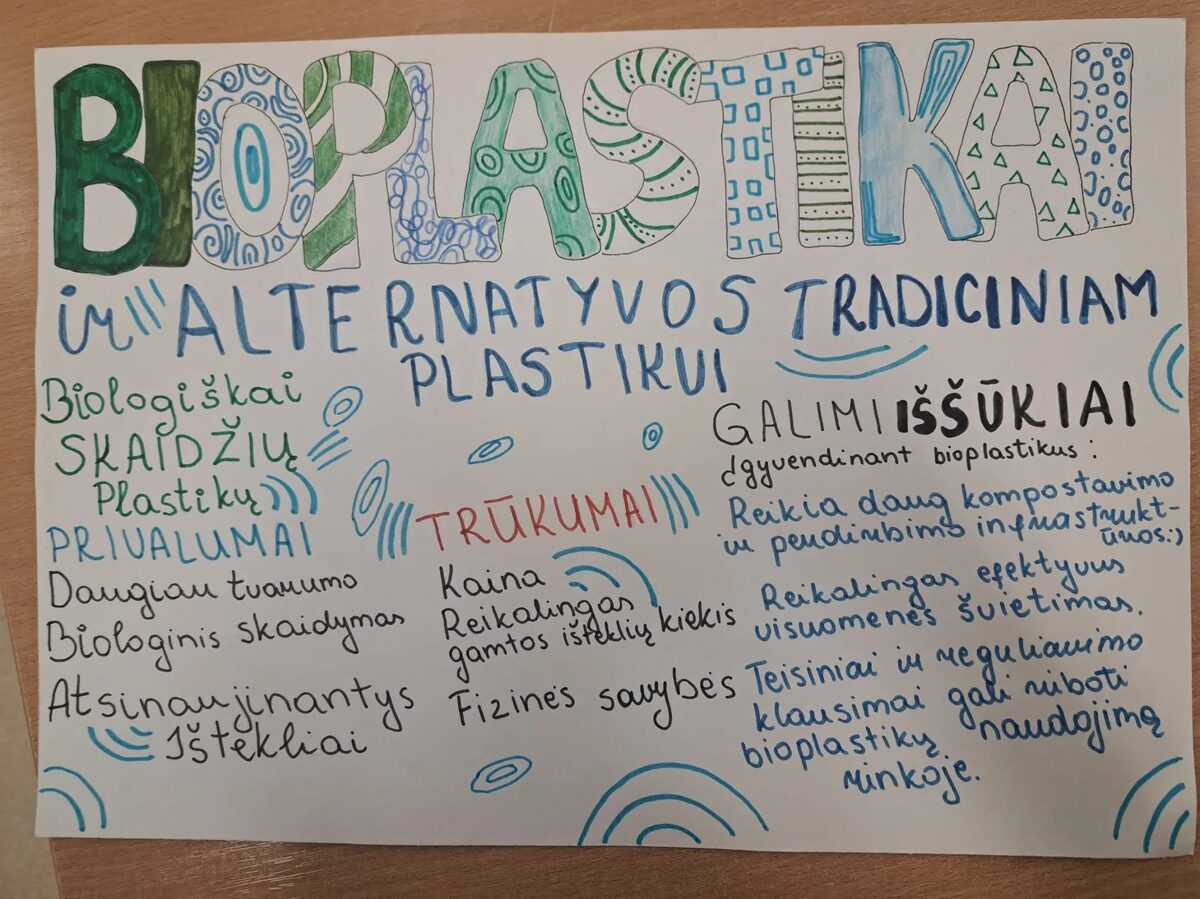 BIOPLASTIKAI
ir ALTERNATYVOS TRADICINIAM
PLASTIKUI
Biologiškai
SKAIDŽIŲ
Plastikų
PRIVALUMAI
Daugiau tvarumo
Biologinis skaidymas
Atsinaujinantys
Ištekliai
TRŪKUMAI
Kaina
Reikalingas
gamtos išteklių kiekis
Fizinės savybės
GALIMI IŠŠŪKIAI
Įgyvendinant bioplastikus:
Reikia daug kompostavimo
ir perdirbimo infrastrukt-
ūros:)
Reikalingas efektyvus
visuomenės švietimas.
Teisiniai ir reguliavimo
klausimai gali riboti
bioplastikų naudojimą
rinkoje.